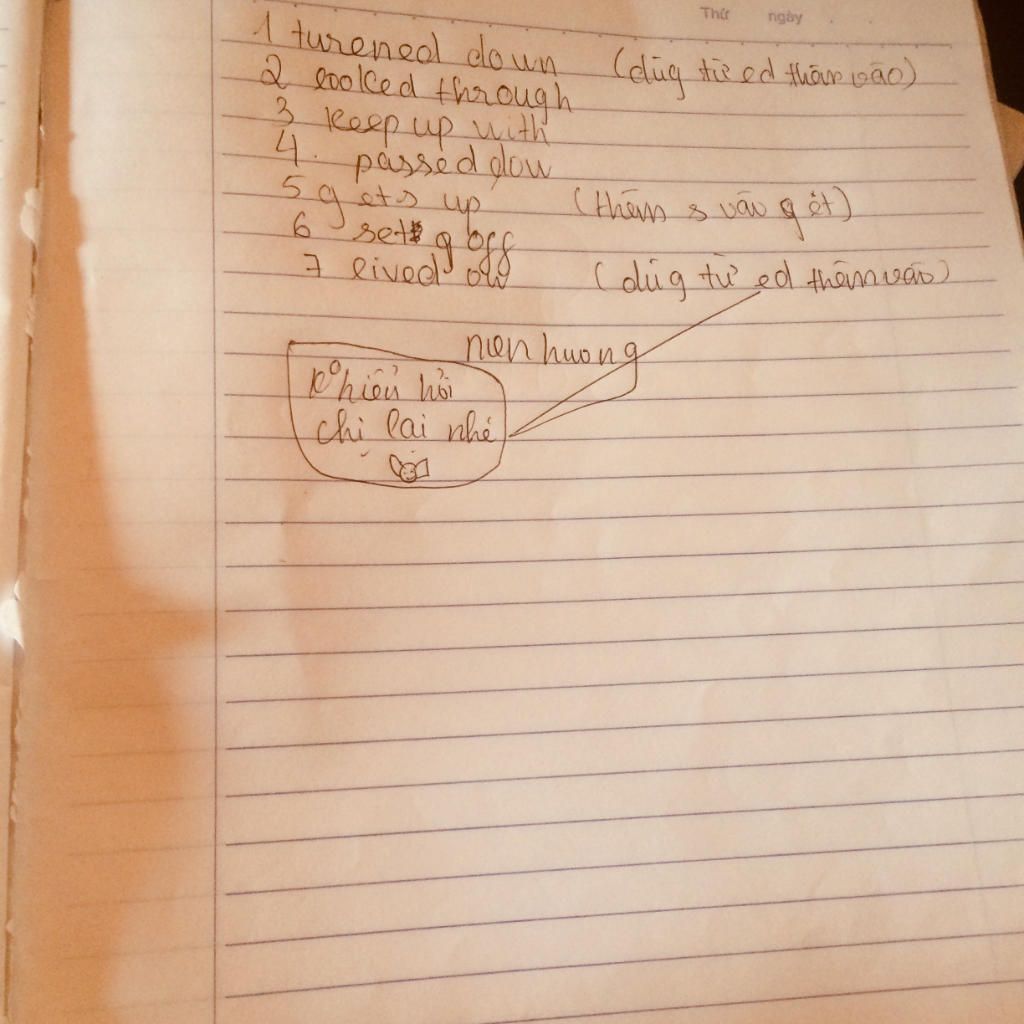 Thứ ngày . .
1 turened down (dũg từ ed thêm vào)
2 looked through
3 keep up with
4. passed dow
5 gets up (thêm s vào gét)
6 set g off
7 lived ow (dũg từ ed thêm vào)
nen huong
K° hiểu hỏi
chị lại nhé